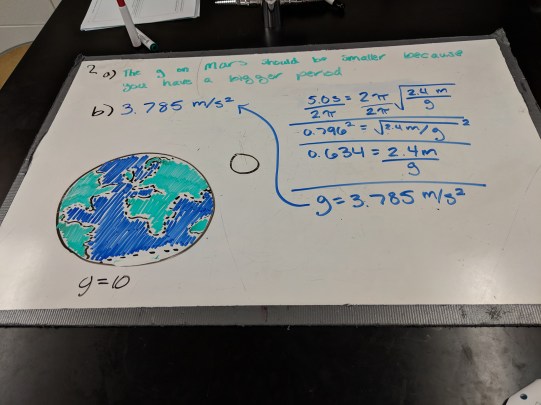 2 a) The g on Mars should be smaller because
you have a bigger period
b) 3.785 m/s²
5.03 = 2π √2.4 m / g
2π 2π
0.796² = √2.4 m/g ²
0.634 = 2.4 m / g
g = 3.785 m/s²
g = 10